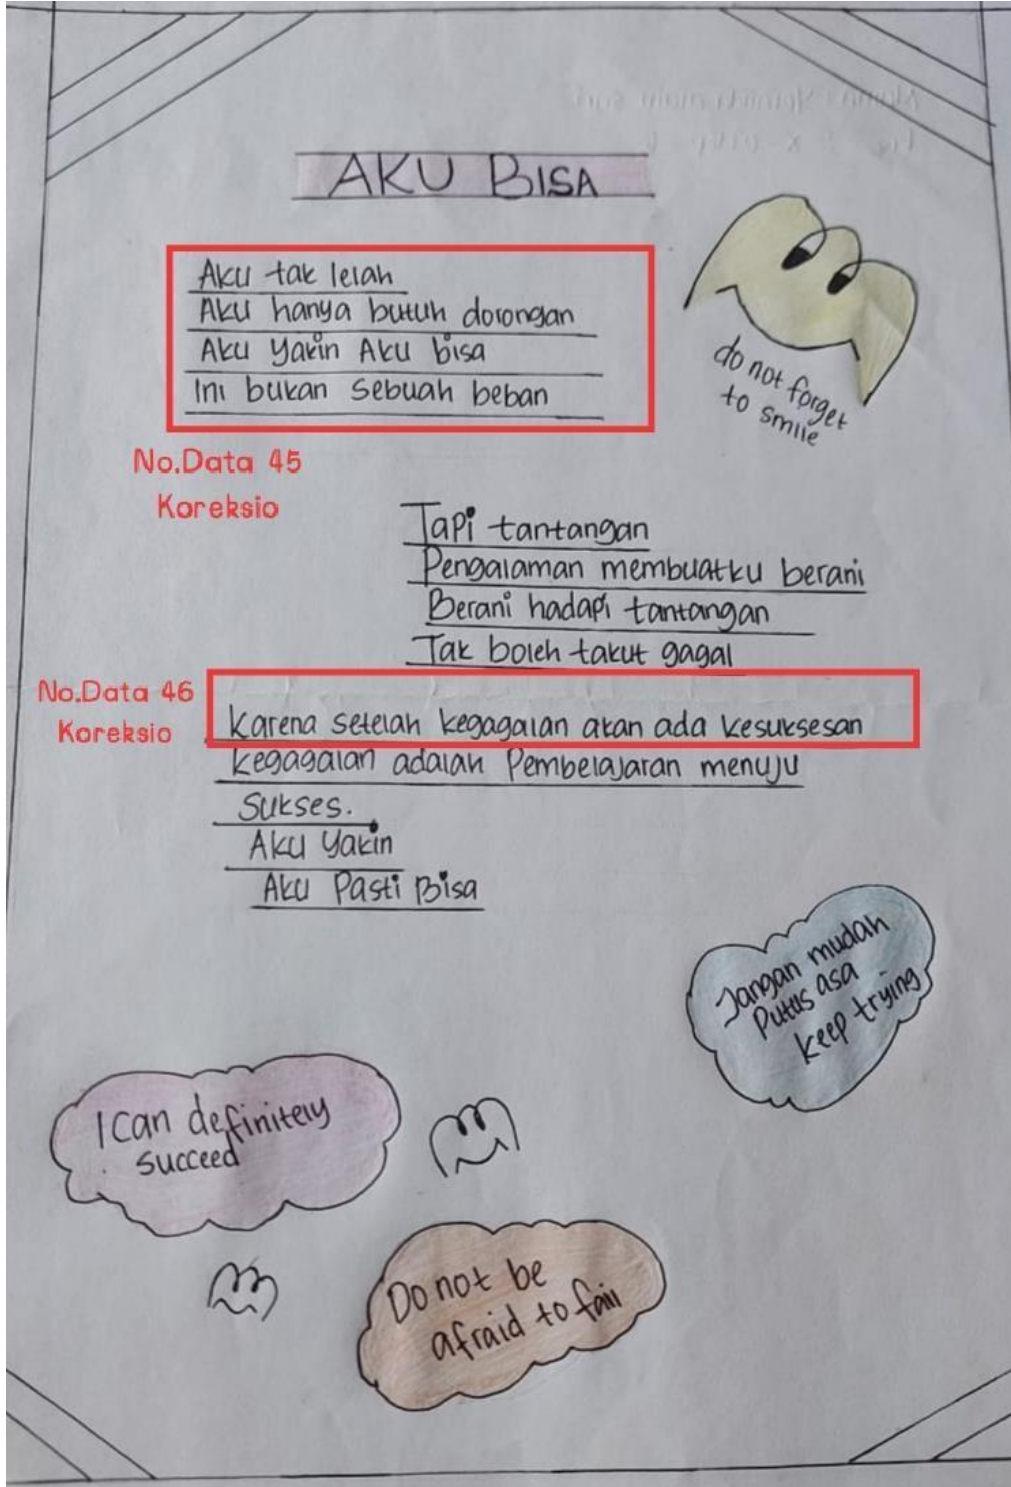 AKU BISA
Aku tak lelah
Aku hanya butuh dorongan
Aku yakin Aku bisa
Ini bukan sebuah beban
do not forget
to smile
No.Data 45
Koreksio
Tapi tantangan
Pengalaman membuatku berani
Berani hadapi tantangan
Tak boleh takut gagal
No.Data 46
Koreksio
Karena setelah kegagalan akan ada kesuksesan
kegagalan adalah Pembelajaran menuju
Sukses.
Aku Yakin
Aku Pasti Bisa
Jangan mudah
Putus asa
keep trying
I Can definitely
succeed
Do not be
afraid to fail